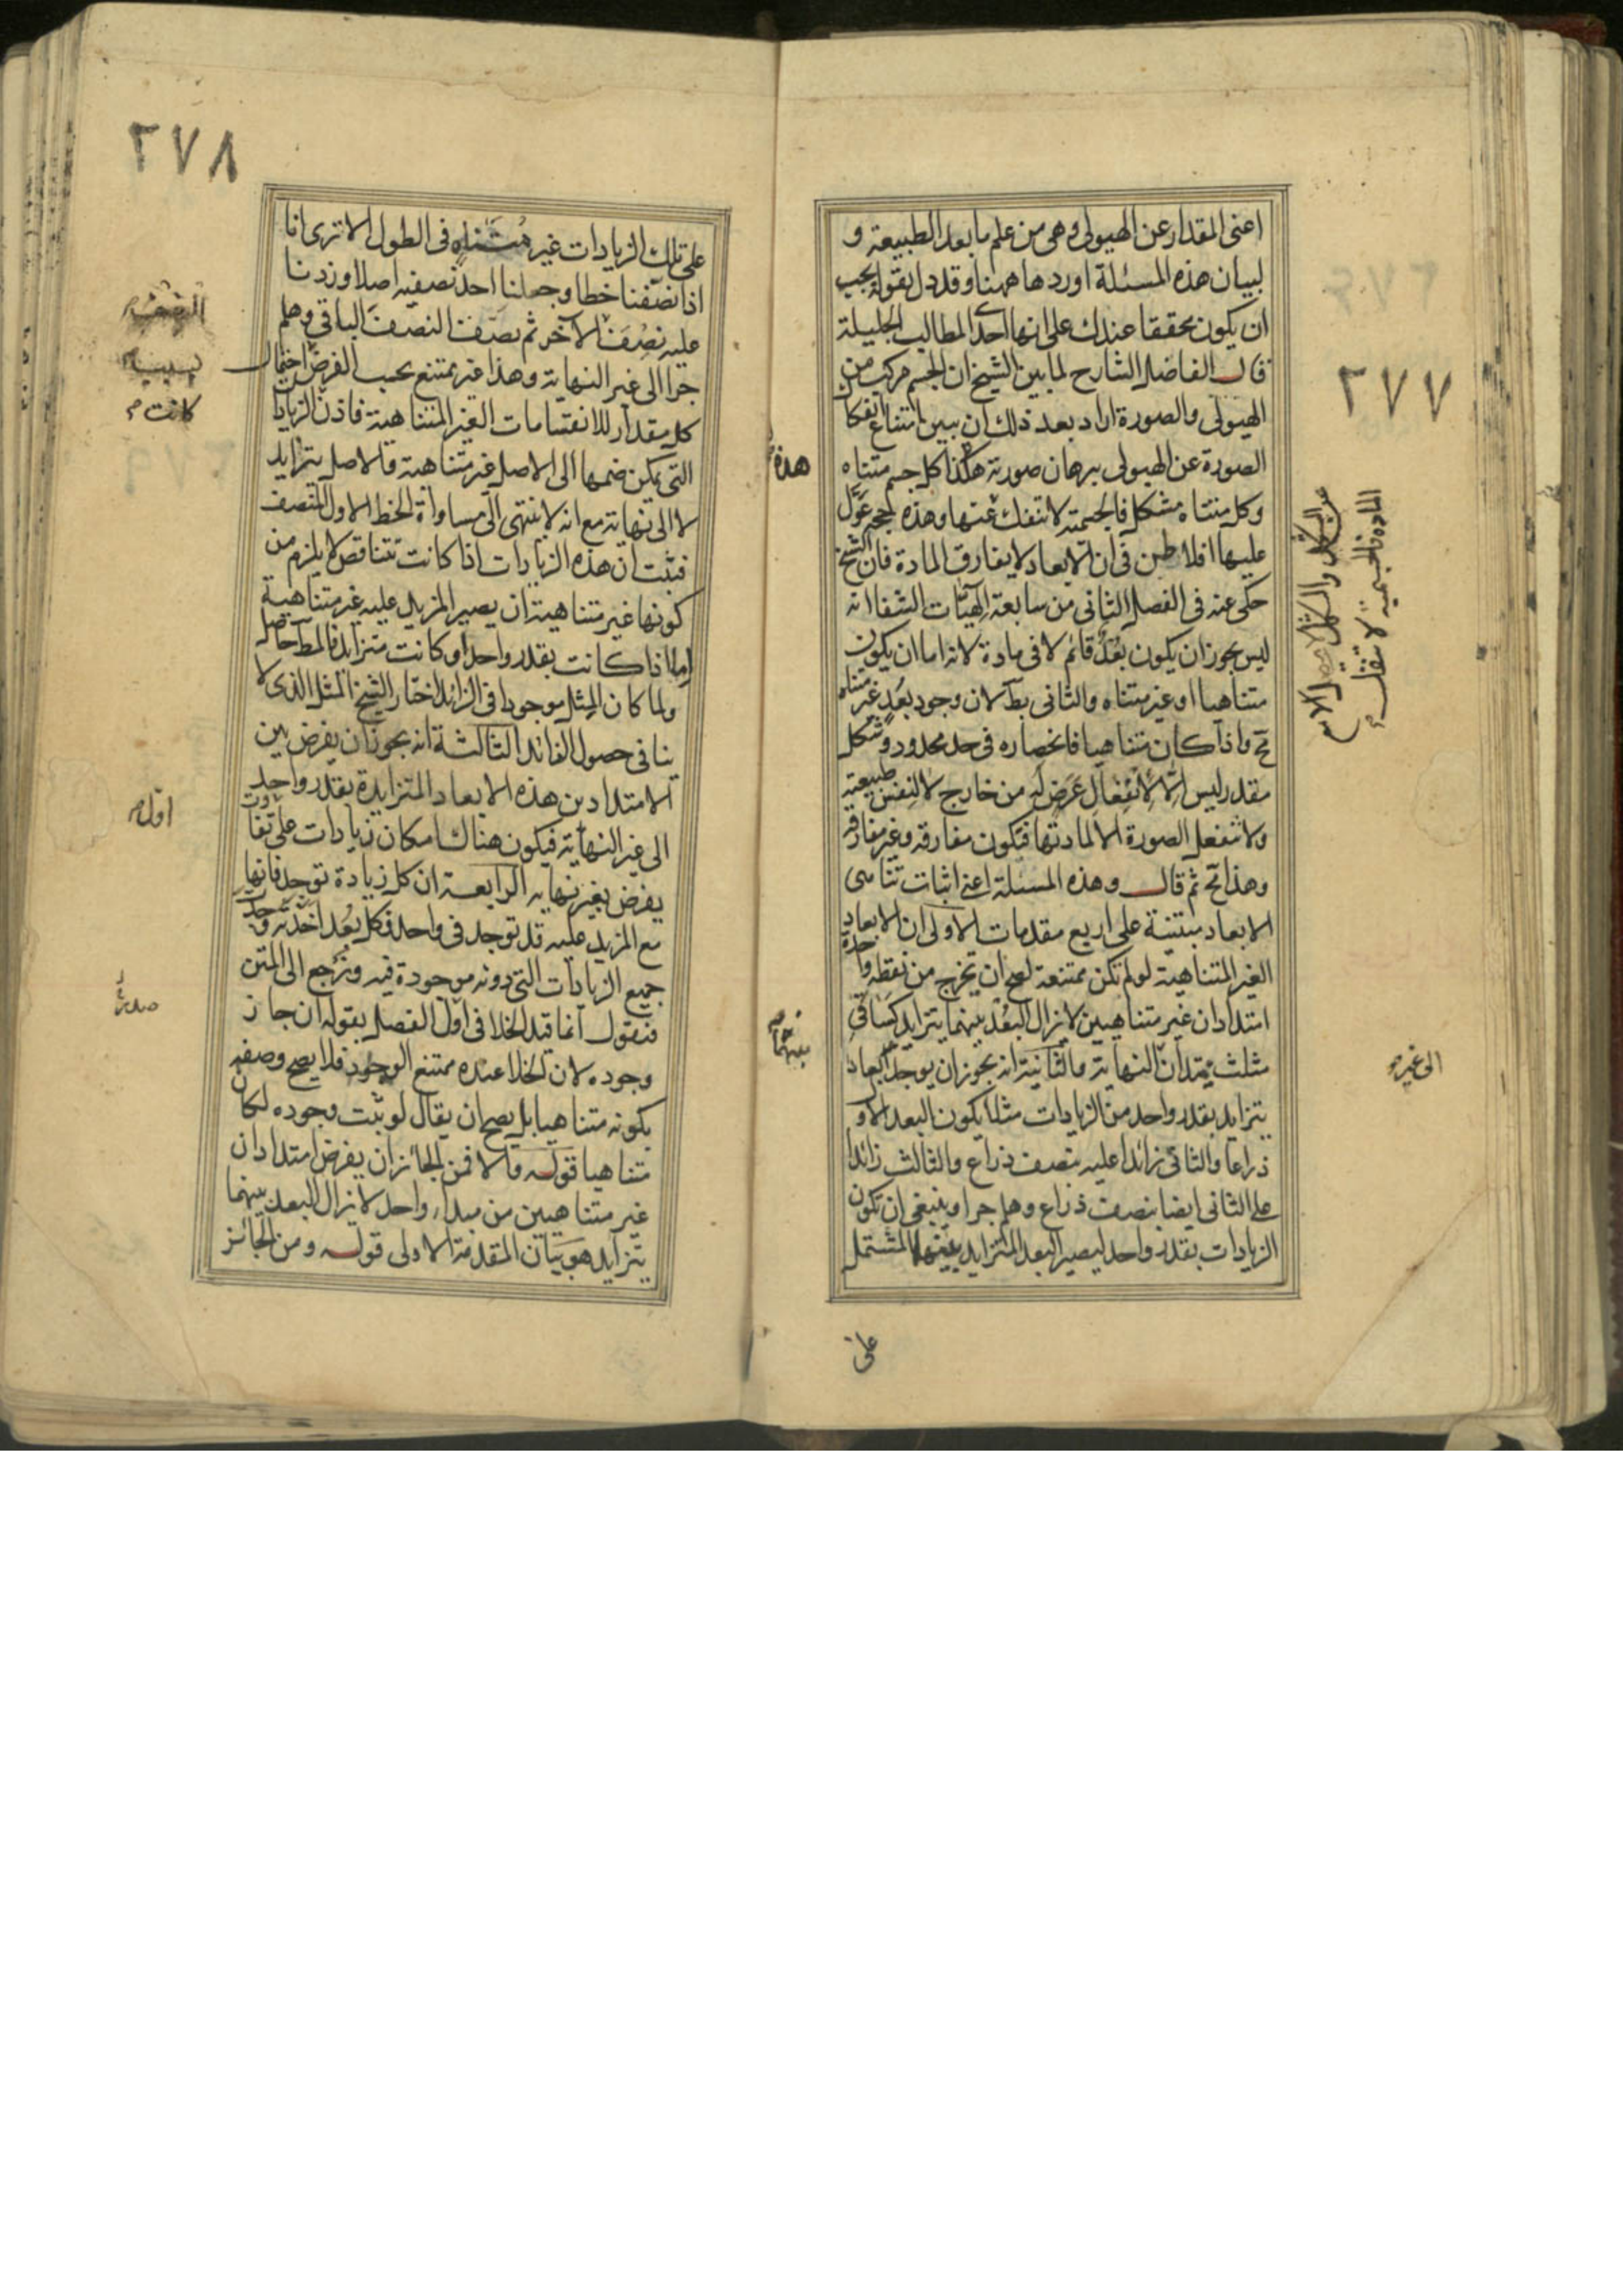 ٢٧٧
اعنى المقدار عن الهيولى وهى من علم ما بعد الطبيعة و
لبيان هذه المسئلة اوردها ههنا وقد دل بقوله يجب
ان يكون محققا عندك على انها احد المطالب الجليلة
قال الفاضل الشارح لما بين الشيخ ان الجسم مركب من
الهيولى والصورة اراد بعد ذلك ان يبين امتناع انفكاك
الصورة عن الهيولى ببرهان صورته هكذا كل جسم متناه
وكل متناه مشكل فالجسمية لا تنفك عنها وهذه الحجة عول
عليها افلاطن فى ان الابعاد لا يفارق المادة فان الشيخ
حكى عنه فى الفصل الثانى من سابعة الهيات الشفا انه
ليس يجوز ان يكون بعد قائم لا فى مادة لانه اما ان يكون
متناهيا او غير متناه والثانى بط لان وجود بعد غير متناه
مح واذا كان متناهيا فانحصاره فى حد محدود وشكل
مقدر ليس الا لانفعال عرض له من خارج لا لنفس طبيعته
ولا تنفعل الصورة الا لمادتها فتكون مفارقه وغير مفارقه
وهذا مح ثم قال وهذه المسئلة اعنى اثبات تناهى
الابعاد مبتنية على اربع مقدمات الاولى ان الابعاد
الغير المتناهية لو لم تكن ممتنعة لصح ان يخرج من نقطه واحدة
امتدادان غير متناهيين لا يزال البعد بينهما يتزايد كساقى
مثلث يمتدان النهاية والثانية انه يجوز ان يوجد ابعاد
يتزايد بقدر واحد من الزيادات مثلا يكون البعد الاو
ذراعا والثانى زائدا عليه بنصف ذراع والثالث زائدا
على الثانى ايضا بنصف ذراع وهلم جرا وينبغى ان تكون
الزيادات بقدر واحد ليصير البعد المتزايد بينهما المشتمل
على
هذه
بينهما
المادة فالجسمية لا تنفك
الى غير
٢٧٨
على تلك الزيادات غير متناه فى الطول الا ترى انا
اذا نصفنا خطا وجعلنا احد نصفيه اصلا وزدنا
عليه نصف الآخر ثم نصف النصف الباقى وهلم
جرا الى غير النهاية وهذا غير ممتنع بحسب الفرض احتمال
كل مقدار للانقسامات الغير المتناهية فاذن الزيادات
التى يمكن ضمها الى الاصل غير متناهية والاصل يتزايد
لا الى نهاية مع انه لا ينتهى الى مساواة الخط الاول المنتصف
فثبت ان هذه الزيادات اذا كانت تتناقص لا يلزم من
كونها غير متناهية ان يصير المزيد عليه غير متناهية
اما اذا كانت بقدر واحد او كانت متزايد فالمط حاصل
ولما كان المثل موجودا فى الزائد اختار الشيخ المثل الذى لا
ينافى حصول الفائد الثالثة انه يجوز ان يفرض بين
الامتدادين هذه الابعاد المتزايدة بقدر واحد
الى غير النهاية فيكون هناك امكان زيادات على تفاوت
يفرض بغير نهايه الرابعة ان كل زيادة توجد فانها
مع المزيد عليه قد توجد فى واحد فكل بعد اخذته وجد
جميع الزيادات التى دونه موجودة فيه ونرجع الى المتن
فنقول انما قيد الخلا فى اول الفصل بقوله ان جاز
وجوده لان الخلا عنده ممتنع الوجود فلا يصح وصفه
بكونه متناهيا بل يصح ان يقال لو ثبت وجوده لكان
متناهيا قوله والا فمن الجائز ان يفرض امتدادان
غير متناهيين من مبداء واحد لا يزال البعد بينهما
يتزايد هو بيان المقدمة الاولى قوله ومن الجائز
كانت